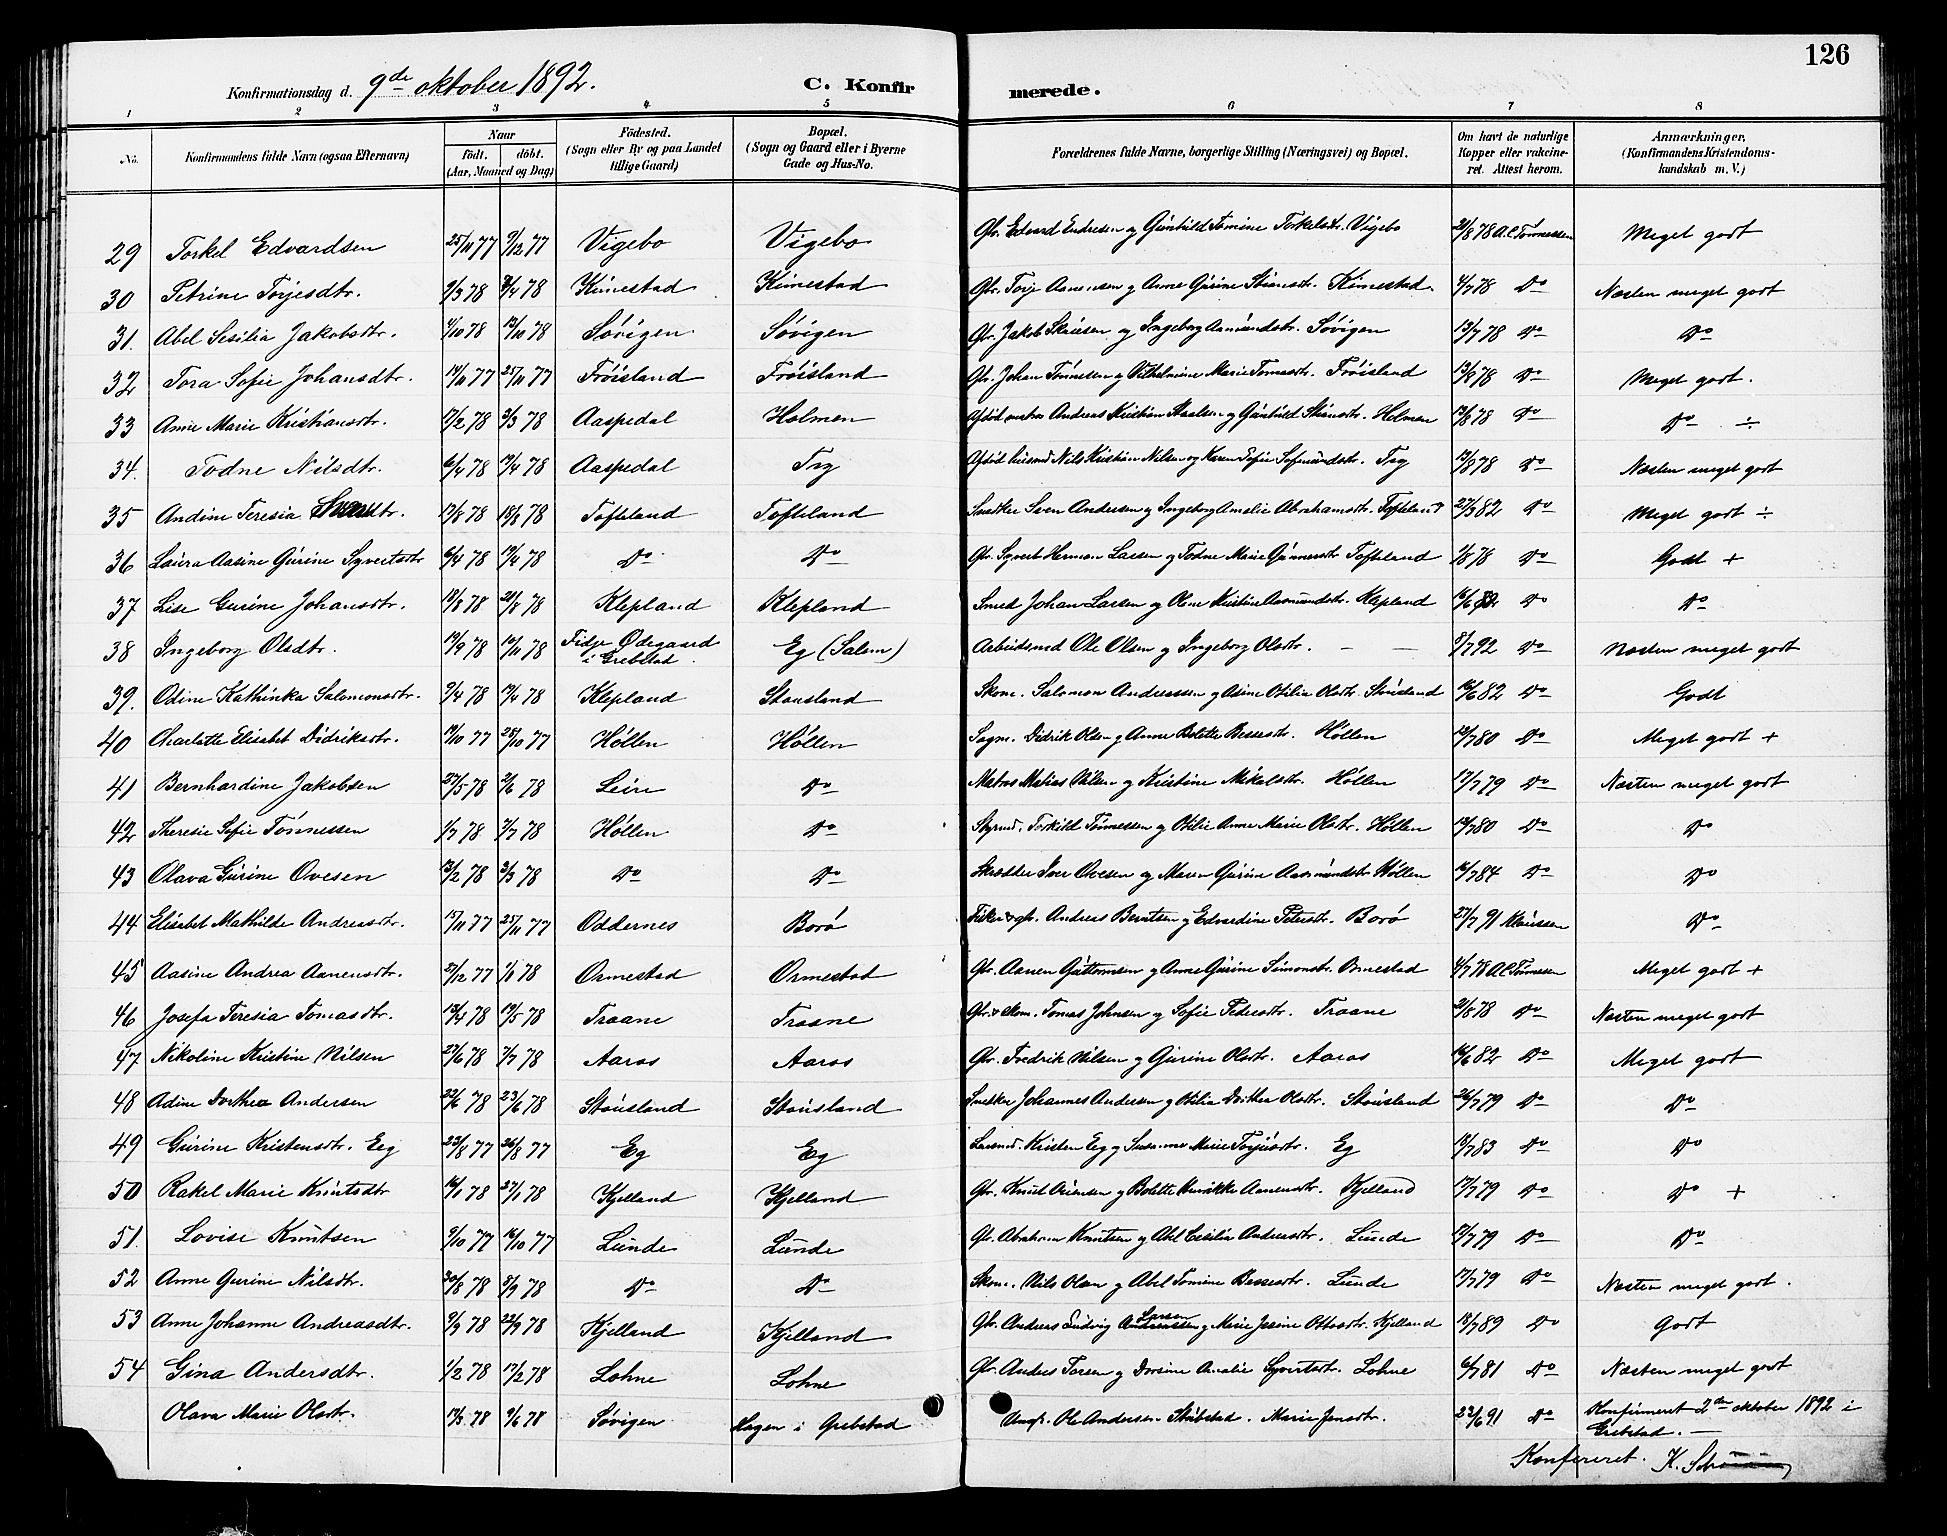 126
Konfirmationsdag d. 9de oktober 1892. C. Konfirmerede.
1 2 3 4 5 6 7 8
No. Konfirmandens fulde Navn (ogsaa Efternavn) Naar födt. döbt. (Aar, Maaned og Dag) Födested. (Sogn eller By og paa Landet tillige Gaard) Bopæl. (Sogn og Gaard eller i Byerne Gade og Hus-No. Forældrenes fulde Navne, borgerlige Stilling (Næringsvei) og Bopæl. Om havt de naturlige Kopper eller vakcineret. Attest herom. Anmærkninger. (Konfirmandens Kristendomskundskab m. V.)
29 Torkel Edvardsen 25/11 77 9/12 77 Vigebo Vigebo Gbr. Edvard Endresen og Gunhild Tomine Torkelsdtr. Vigebo 21/8 78 A.C. Tönnessen Meget godt
30 Petrine Torjesdtr. Kimestad Kimestad Gbr. Torje Aanensen og Anne Gurine Stiansdtr. Kimestad 4/7 78 Do Næsten meget godt
31. Abel Sesilia Jakobsdtr. 4/10 78 13/10 78 Søvigen Søvigen Gbr. Jakob og Ingeborg Asmundsdtr. Søvigen 13/7 78 Do Do
32 Tora Sofie Johansdtr. 14/11 77 25/11 77 Frøisland Frøisland Gbr. Johan Tönnesen og Vilhelmine Marie Tomasdtr. Frøisland 13/8 78 Do Meget godt.
33 Anne Marie Kristiansdtr. 17/2 78 3/3 78 Aaspedal Holmen Afdöd matros Andreas Kristian Staalsen og Gunhild Stiansdtr. Holmen 13/8 78 Do Do ÷
34. Todne Nilsdtr. 6/4 78 19/4 78 Aaspedal Try Afdöd husmd Nils Kristian Nilsen og Karen Sofie Sofmundsdtr. Try 13/8 78 Do Næsten meget godt
35 Andine Teresia Svensdtr. 17/8 78 18/8 78 Tofteland Tofteland Snedker Sven Andersen og Ingeborg Amalie Abrahamsdtr. Tofteland 27/3 82 Do Meget godt ÷
36 Laura Aasine Gurine Syvertsdtr 6/4 78 19/4 78 Do Do Gbr. Syvert Herman Larsen og Todne Marie Gunnersdtr Tofteland 1/8 78 Do Godt +
37 Lise Gurine Johansdtr. 10/8 78 21/8 78 Klepland Klepland Smed Johan Larsen og Olene Kristine Aasmundsdtr. Klepland 16/6 82 Do Do
38 Ingeborg Olsdtr. 19/9 78 10/11 78 Fidje Ødegaard i Grebstad Eg (Salem) Arbeidsmd Ole Olsen og Ingeborg Olsdtr. — — 8/7 92 Do Næsten meget godt
39. Odine Kathinka Salomonsdtr. 9/4 78 19/4 78 Klepland Stausland Skom. Salomon Andreassen og Adine Otilia Olsdtr. Stausland 16/6 82 Do Godt
40 Charlotte Elisabet Didriksdtr. 19/10 77 28/10 77 Høllen Høllen Sagm. Didrik Olsen og Anne Bolette Bessesdtr. Høllen 10/7 80 Do Meget godt +
41 Bernhardine Jakobsen 27/5 78 2/6 78 Leire Do Matros Matias Nilsen og Kristine Mikalsdtr. Høllen 17/7 79 Do Næsten meget godt
42 Theresie Sofie Tönnessen 1/7 78 7/7 78 Høllen Do Styrmd. Torkild Tönnessen og Otilie Anne Marie Olsdtr. Høllen 10/7 80 Do Do
43 Olava Gurine Ovesen 13/2 78 3/3 78 Do Do Skrædder Iver Ovesen og Maren Gurine Aasmundsdtr Høllen 16/7 84 Do Do
44 Elisabet Mathilde Andreasdtr. 15/11 77 25/11 77 Oddernes Borø Fisker & gbr. Andreas Berntsen og Edvardine Petersdtr. Borø 27/7 91 Klaussen Do
45 Aasine Andrea Aanensdtr. 21/12 77 1/1 78 Ormestad Ormestad Gbr. Aanen Guttormsen og Anne Gurine Simonsdtr. Ormestad 4/7 78 A.C. Tönnessen Meget godt +
46 Josefa Teresia Tomasdtr. 13/4 78 19/5 78 Traane Traane Gbr. & skom. Tomas Johnsen og Sofie Pedersdtr. Traane 21/8 78 Do Næsten meget godt
47 Nikoline Kristine Nilsen 27/6 78 7/7 78 Aaros Aaros Gbr. Fredrik Nilsen og Gurine Olsdtr. Aaros 16/6 82 Do Meget godt
48 Adine Dorthea Andersen 22/6 78 23/6 78 Stausland Stausland Snedker Johannes Andersen og Otilia Dorthea Olsdtr. Stausland 26/7 79 Do Do
49 Gurine Kristensdtr. Eeg 23/8 77 26/8 77 Eg Eg Kristen Eeg og Susanne Marie Torjusdtr. Eg 18/7 83 Do Do
50 Rakel Marie Knutsdtr 16/1 78 27/1 78 Kjelland Kjelland Gbr. Knud og Bolette Henrikke Aanensdtr. Kjelland 17/7 79 Do Do +
51. Lovise Knutsen 9/10 77 16/10 77 Lunde Lunde Gbr. Abraham Knutsen og Abel Cesilia Andersdtr. Lunde 17/7 79 Do Do
52 Anne Gurine Nilsdtr. 30/8 78 8/9 78 Do Do Skom. Nils Olsen og Abel Tomine Bessesdtr. Lunde 17/7 79 Do Næsten meget godt.
53 Anne Johanne Andreasdtr. 9/9 78 22/9 78 Kjelland Kjelland Gbr. Andreas Ludvig Andreassen Larsen og Marie Jesine Ottosdtr. Kjelland 18/7 89 Do Godt
54 Gina Andersdtr. 1/2 78 17/2 78 Lohne Lohne Gbr. Anders Torsen og Dorsine Amalie Syvertsdtr. Lohne 6/7 81 Do Næsten meget godt
Olava Marie Olsdtr. 9/6 78 Søvigen Hagen i Grebstad Ungk. Ole Andersen Stubstad. Marie Jensdtr. 23/6 91 Do Konfirmeret 2den oktober 1892 i Grebstad. —
Konfereret. K.